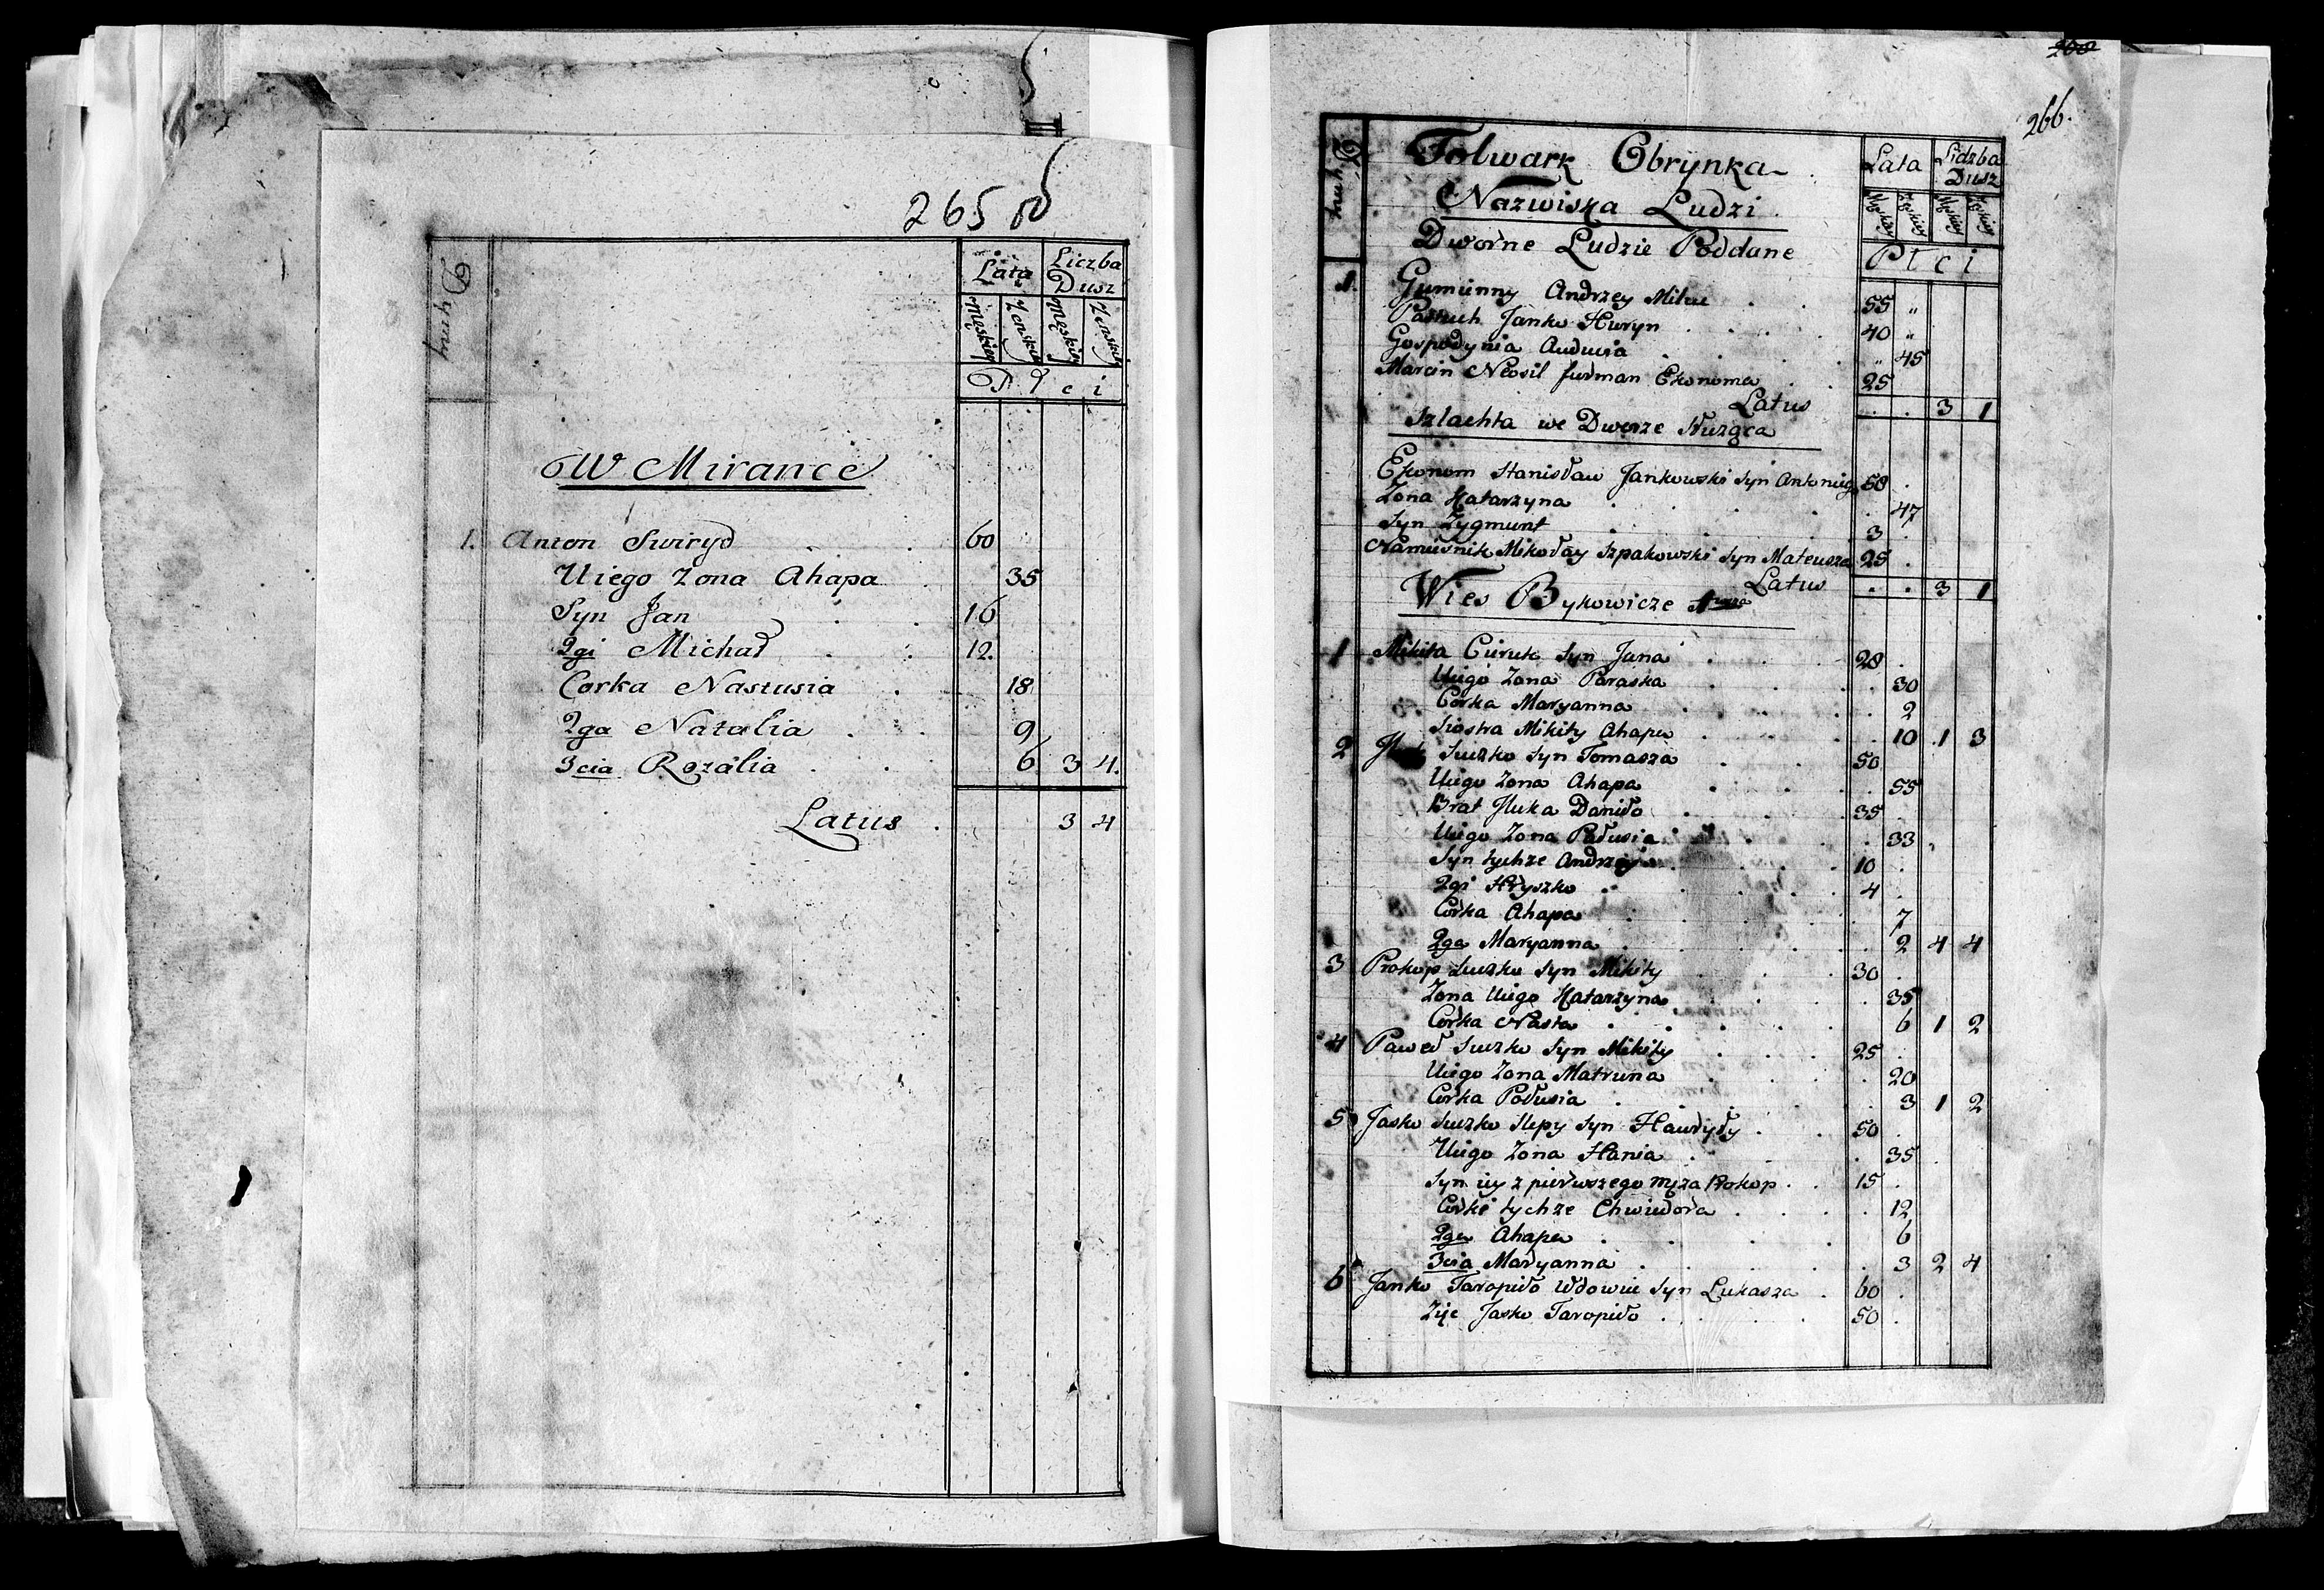 265 об
Dymy
Lata Liczba Dusz
Męskiey Zenskiey Męskiey Zenskiey
Płci
W Mirance
1. Anton Swiryd 60
Uiego Zona Ahapa 35
Syn Jan 16
2gi Michał 12.
Corka Nastusia 18
2ga Natalia 9
3cia Rozalia 6. 3 4.
Latus 3 4
266.
Folwark Obrynka
Lata Lidzba Dusz
Nazwiska Ludzi
Dworne Ludzie Poddane
Płci
1. Gumienny Andrzey 55 "
Pastuch Janko Huryn 40 "
Gospodynia Auducia " 45
Marcin Neosil furman Ekonoma 25
Latus 3 1
Szlachta we Dworze
Ekonom Stanisław Jankowski Syn Antoniego 58
Zona Katarzyna 47
Syn Zygmunt 3
Namiesnik Mikołay Szpakowski Syn Mateusza 25
Latus 3 1
Wies Bykowicze
1 Mikita Ciruk Syn Jana 28
Uiego Zona Paraska 30
Corka Maryanna 2
Siostra Mikity Ahapa 10 1 3
2 Suszko Syn Tomasza 50
Uiego Zona Ahapa 55
Brat Iluka Daniło 35
Uiego Zona Połusia 33
Syn tychze Andrzey 10
2gi Hryszko 4
Corka Ahapa 7
2ga Maryanna 2 4 4
3 Prokop Suszko Syn Mikity 30
Zona Uiego Katarzyna 35
Corka Nasta 6 1 2
4 Paweł Suszko Syn Mikity 25
Uiego Zona Matruna 20
Corka Połusia 3 1 2
5 Jasko Suszko Slepy Syn Hawryły 50
Uiego Zona Hania 35
Syn iey z pierwszego męza Prokop 15
Corki tychze Chwiedora 12
2ga Ahapa 6
3cia Maryanna 3 2 4
6 Janko Taropiło Wdowiec Syn Łukasza 60
Zięc Jasko Taropiło 50